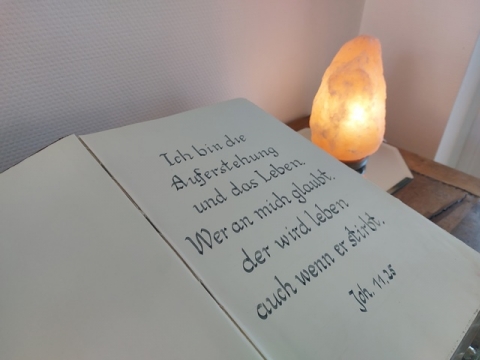 Ich bin die
Auferstehung
und das Leben.
Wer an mich glaubt,
der wird leben
auch wenn er stirbt.
Joh. 11.25